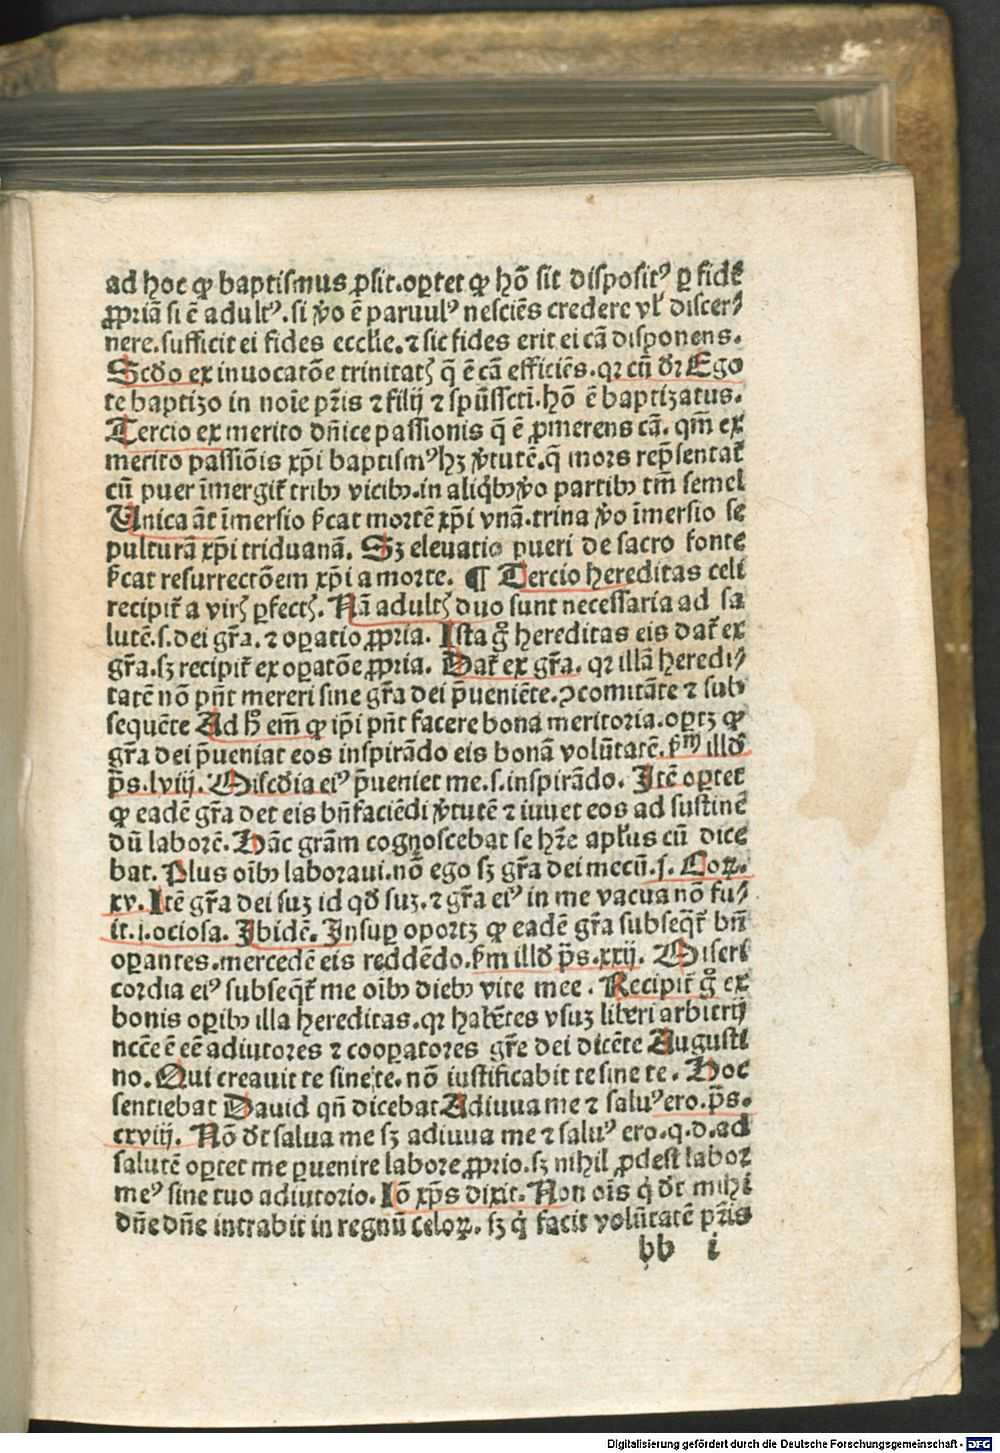 ad hoc ꝙ baptismus ꝓsit.oꝑtet ꝙ hõ sit disposit⁹ ꝑ fidẽ
ꝓpriã si ẽ adult⁹. si ṽo ẽ paruul⁹ nesciẽs credere vł discer⸗
nere.sufficit ei fides ecclie.⁊ sic fides erit ei cã disponens.
Scðo ex inuocatõe trinitatꝭ q̃ ẽ cã efficiẽs.qꝛ cũ dr̃ Ego
te baptizo in noĩe pr̃is ⁊ filij ⁊ spũssctĩ.hõ ẽ baptizatus.
Tercio ex merito dñice passionis q̃ ẽ ꝓmerens cã. qm̃ ex
merito passiõis xp̃i baptism⁹ hꝫ ṽtutẽ.q̃ mors rep̃sentat̃
cũ puer ĩmergit̃ tribꝰ vicibꝰ.in aliq̃bꝰ ṽo partibꝰ tm̃ semel
Unica ãt ĩmersio ſ̃cat mortẽ xp̃i vnã.trina ṽo ĩmersio se
pulturã xp̃i triduanã. Sꝫ eleuatio pueri de sacro fonte
ſ̃cat resurrectõem xp̃i a morte. ¶ Tercio hereditas celi
recipit̃ a virꝭ ꝑfectꝭ. Nã adultꝭ duo sunt necessaria ad sa
lutẽ.s.dei gr̃a.⁊ oꝑatio ꝓpria. Ista g̊ hereditas eis dat̃ ex
gr̃a.sꝫ recipit̃ ex oꝑatõe ꝓpria. Dat̃ ex gr̃a. qꝛ illã heredi⸗
tatẽ nõ pñt mereri sine gr̃a dei p̃ueniẽte.ꝯcomitãte ⁊ sub
sequẽte Ad h̊ em̃ ꝙ ip̃i pñt facere bona meritoria.oꝑtꝫ ꝙ
gr̃a dei p̃ueniat eos inspirãdo eis bonã volũtatẽ. ẜm illð
p̃s.lviij. Miscðia ei⁹ p̃ueniet me.s.inspirãdo. Itẽ oꝑtet
ꝙ eadẽ gr̃a det eis bñfaciẽdi ṽtutẽ ⁊ iuuet eos ad sustinẽ
dũ laborẽ. Hãc gram̃ cognoscebat se hr̃e apl̃us cũ dice
bat. Plus oĩbꝰ laboraui.nõ ego sꝫ gr̃a dei mecũ.j. Coꝝ.
xv. Itẽ gr̃a dei suꝫ id qð suꝫ.⁊ gr̃a ei⁹ in me vacua nõ fu⸗
it.i.ociosa. Ibidẽ. Insuꝑ oportꝫ ꝙ eadẽ gr̃a subseqt̃ bñ
oꝑantes.mercedẽ eis reddẽdo.ẜm illð p̃s.xxij. Miseri
cordia ei⁹ subseqt̃ me oĩbꝰ diebꝰ vite mee. Recipit̃ g̊ ex
bonis oꝑibꝰ illa hereditas.qꝛ habẽtes vsuꝫ liberi arbitrij
ncc̃e ẽ eẽ adiutores ⁊ cooꝑatores gr̃e dei dicẽte Augusti
no. Qui creauit te sine te. nõ iustificabit te sine te. Hoc
sentiebat Dauid qñ dicebat Adiuua me ⁊ salu⁹ ero.p̃s.
cxviij. Nõ dt̃ salua me sꝫ adiuua me ⁊ salu⁹ ero.q.d.ad
salutẽ oꝑtet me ꝑuenire labore ꝓprio.sꝫ nihil ꝓdest labor
me⁹ sine tuo adiutorio. Iõ xp̃s dixit. Non oĩs q̇ dt̃ mihi
dñe dñe intrabit in regnũ celoꝝ. sꝫ q̇ facit volũtatẽ pr̃is
bb i
Digitalisierung gefördert durch die Deutsche Forschungsgemeinschaft - DFG